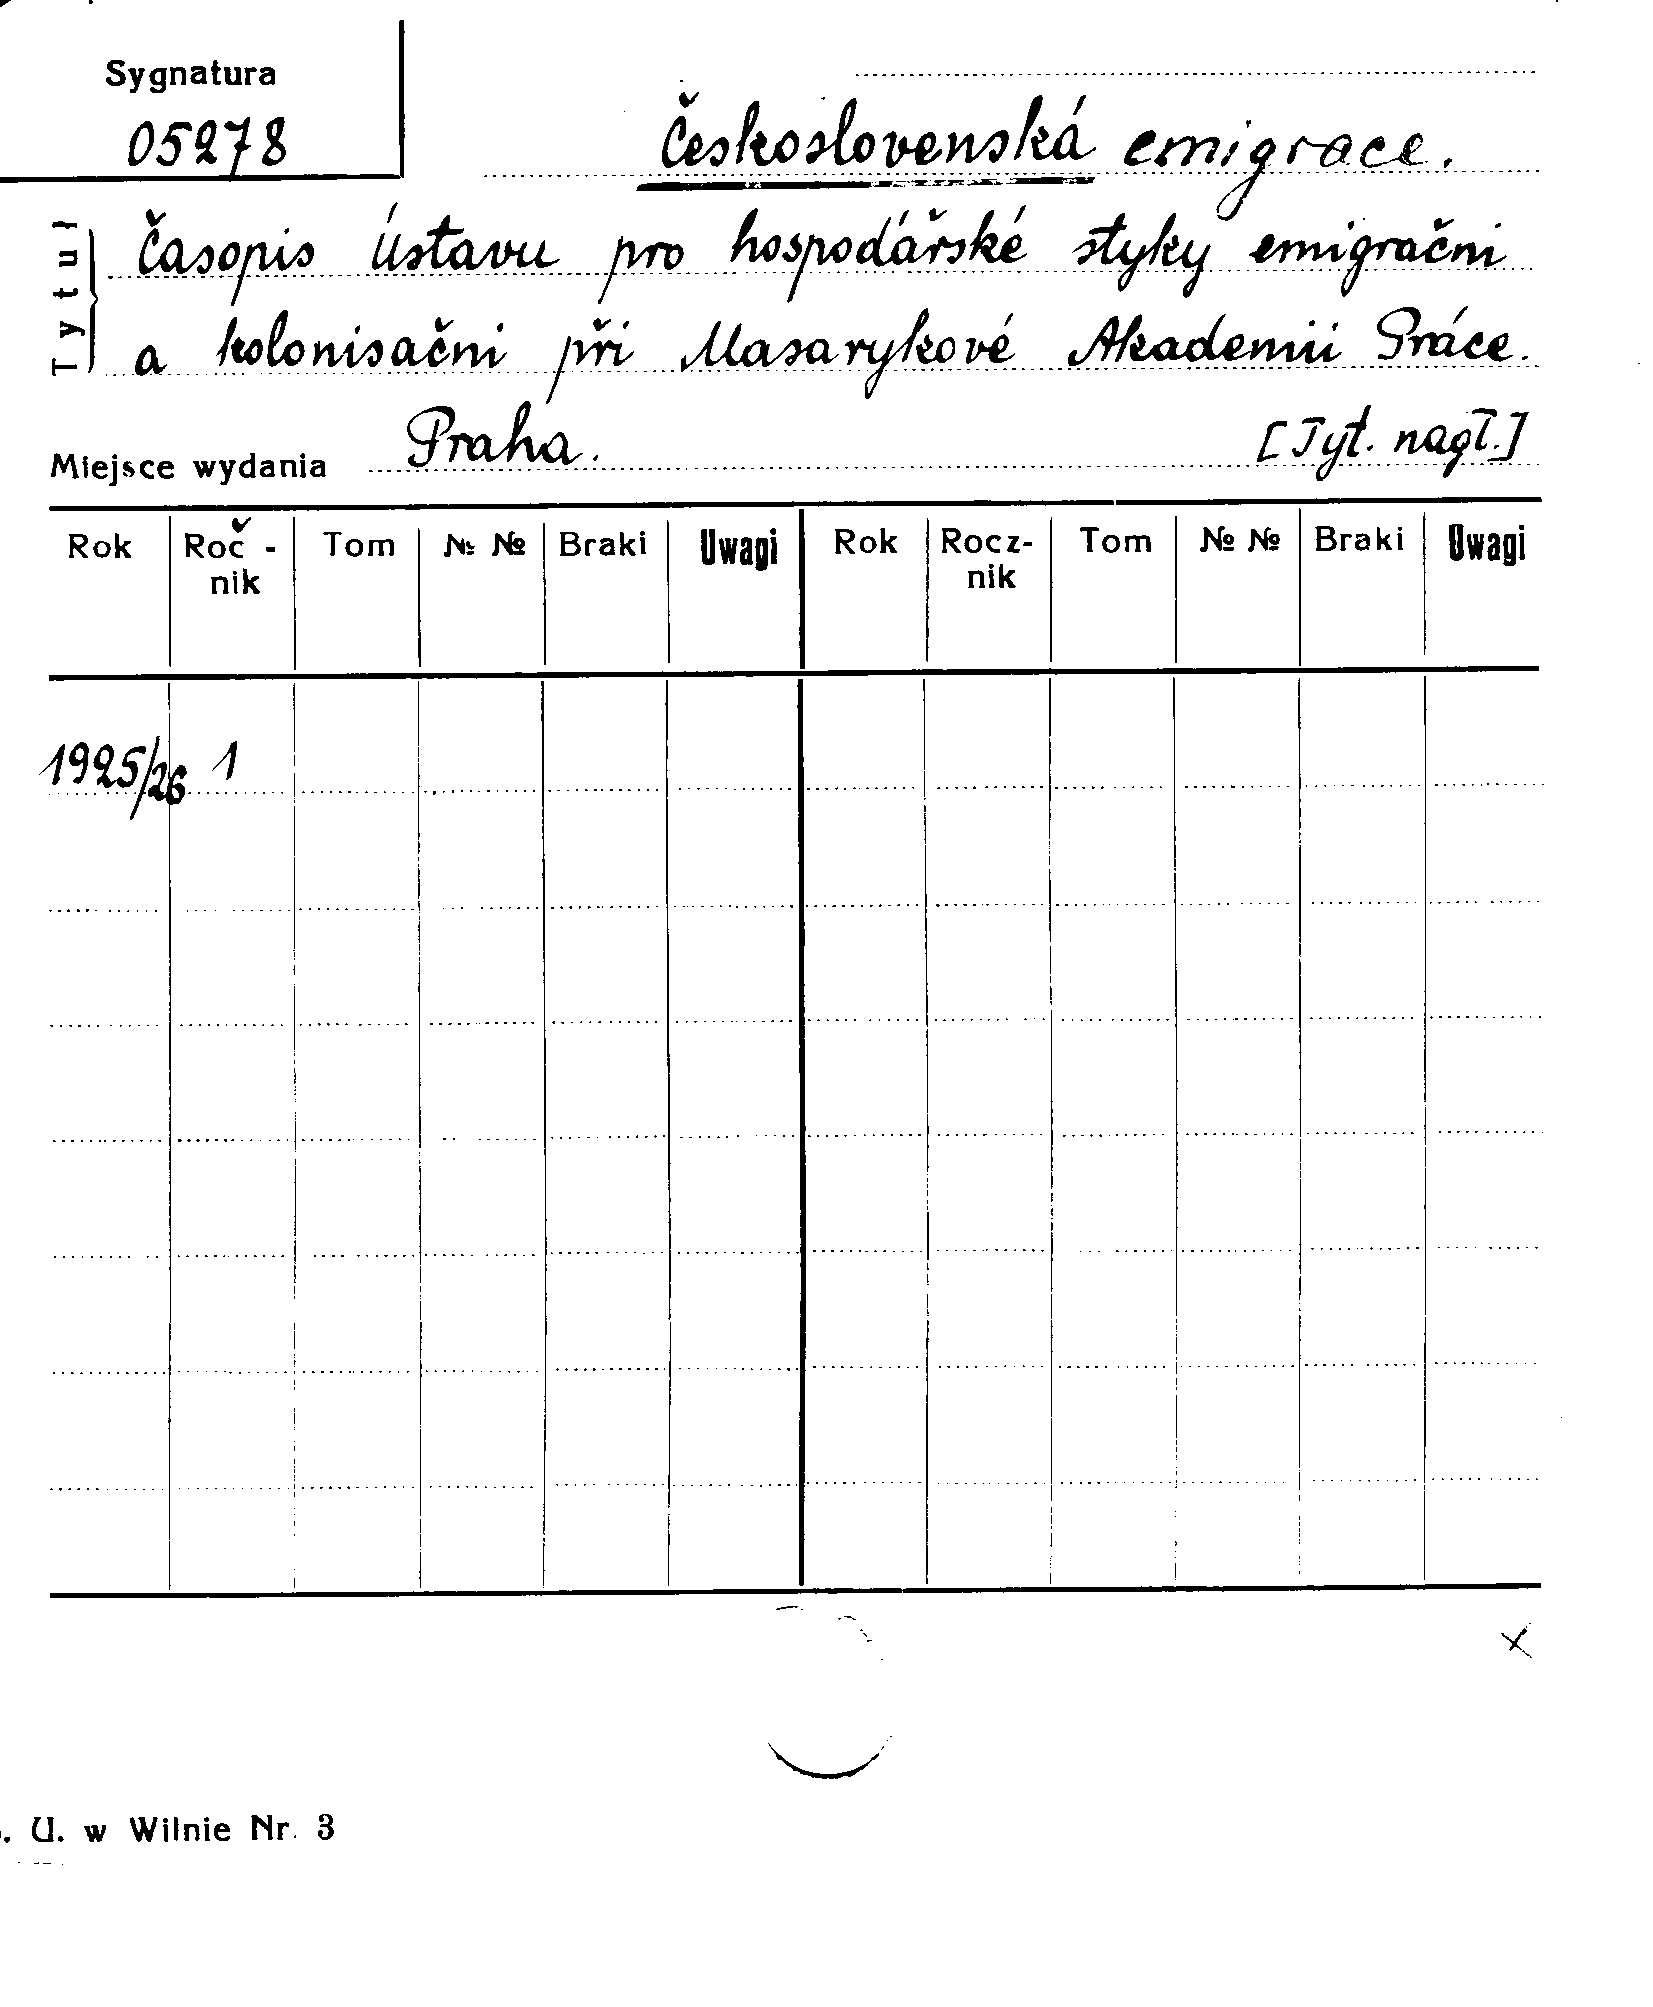 Sygnatura
05278
Československá emigrace.
Tytuł
Časopis Ústavu pro hospodářské styky emigračni
a kolonisačni při Masarykové Akademii Práce.
Miejsce wydania Praha. [Tyt. nagł.]
Rok Roč- Tom №№ Braki Uwagi Rok Rocz- Tom №№ Braki Uwagi
nik nik
1925/26 1
x
. U. w Wilnie Nr. 3